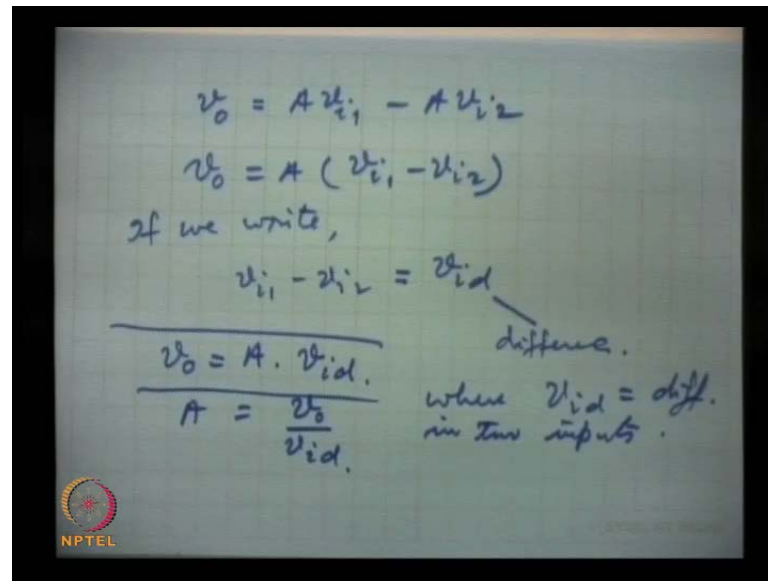 v₀ = A v_i₁ - A v_i₂
v₀ = A ( v_i₁ - v_i₂ )
If we write,
v_i₁ - v_i₂ = v_id
difference.
v₀ = A . v_id.
where v_id = diff.
A = v₀ / v_id.
in two inputs.
NPTEL